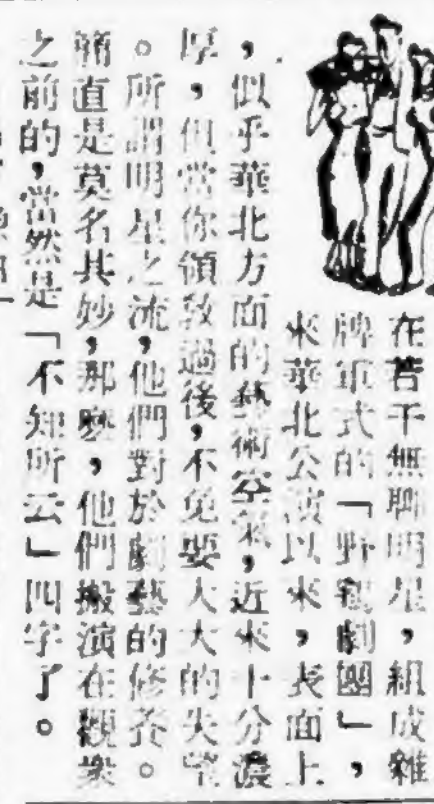 在若干無聊明星,組成雜
牌軍式的「野雞劇團」,
來華北公演以來,表面上
,似乎華北方面的藝術空氣,近來十分濃
厚,但當你領敎過後,不免要大大的失望
。所謂明星之流,他們對於劇藝的修養。
簡直是莫名其妙,那麽,他們搬演在觀衆
之前的,當然是「不知所云」四字了。